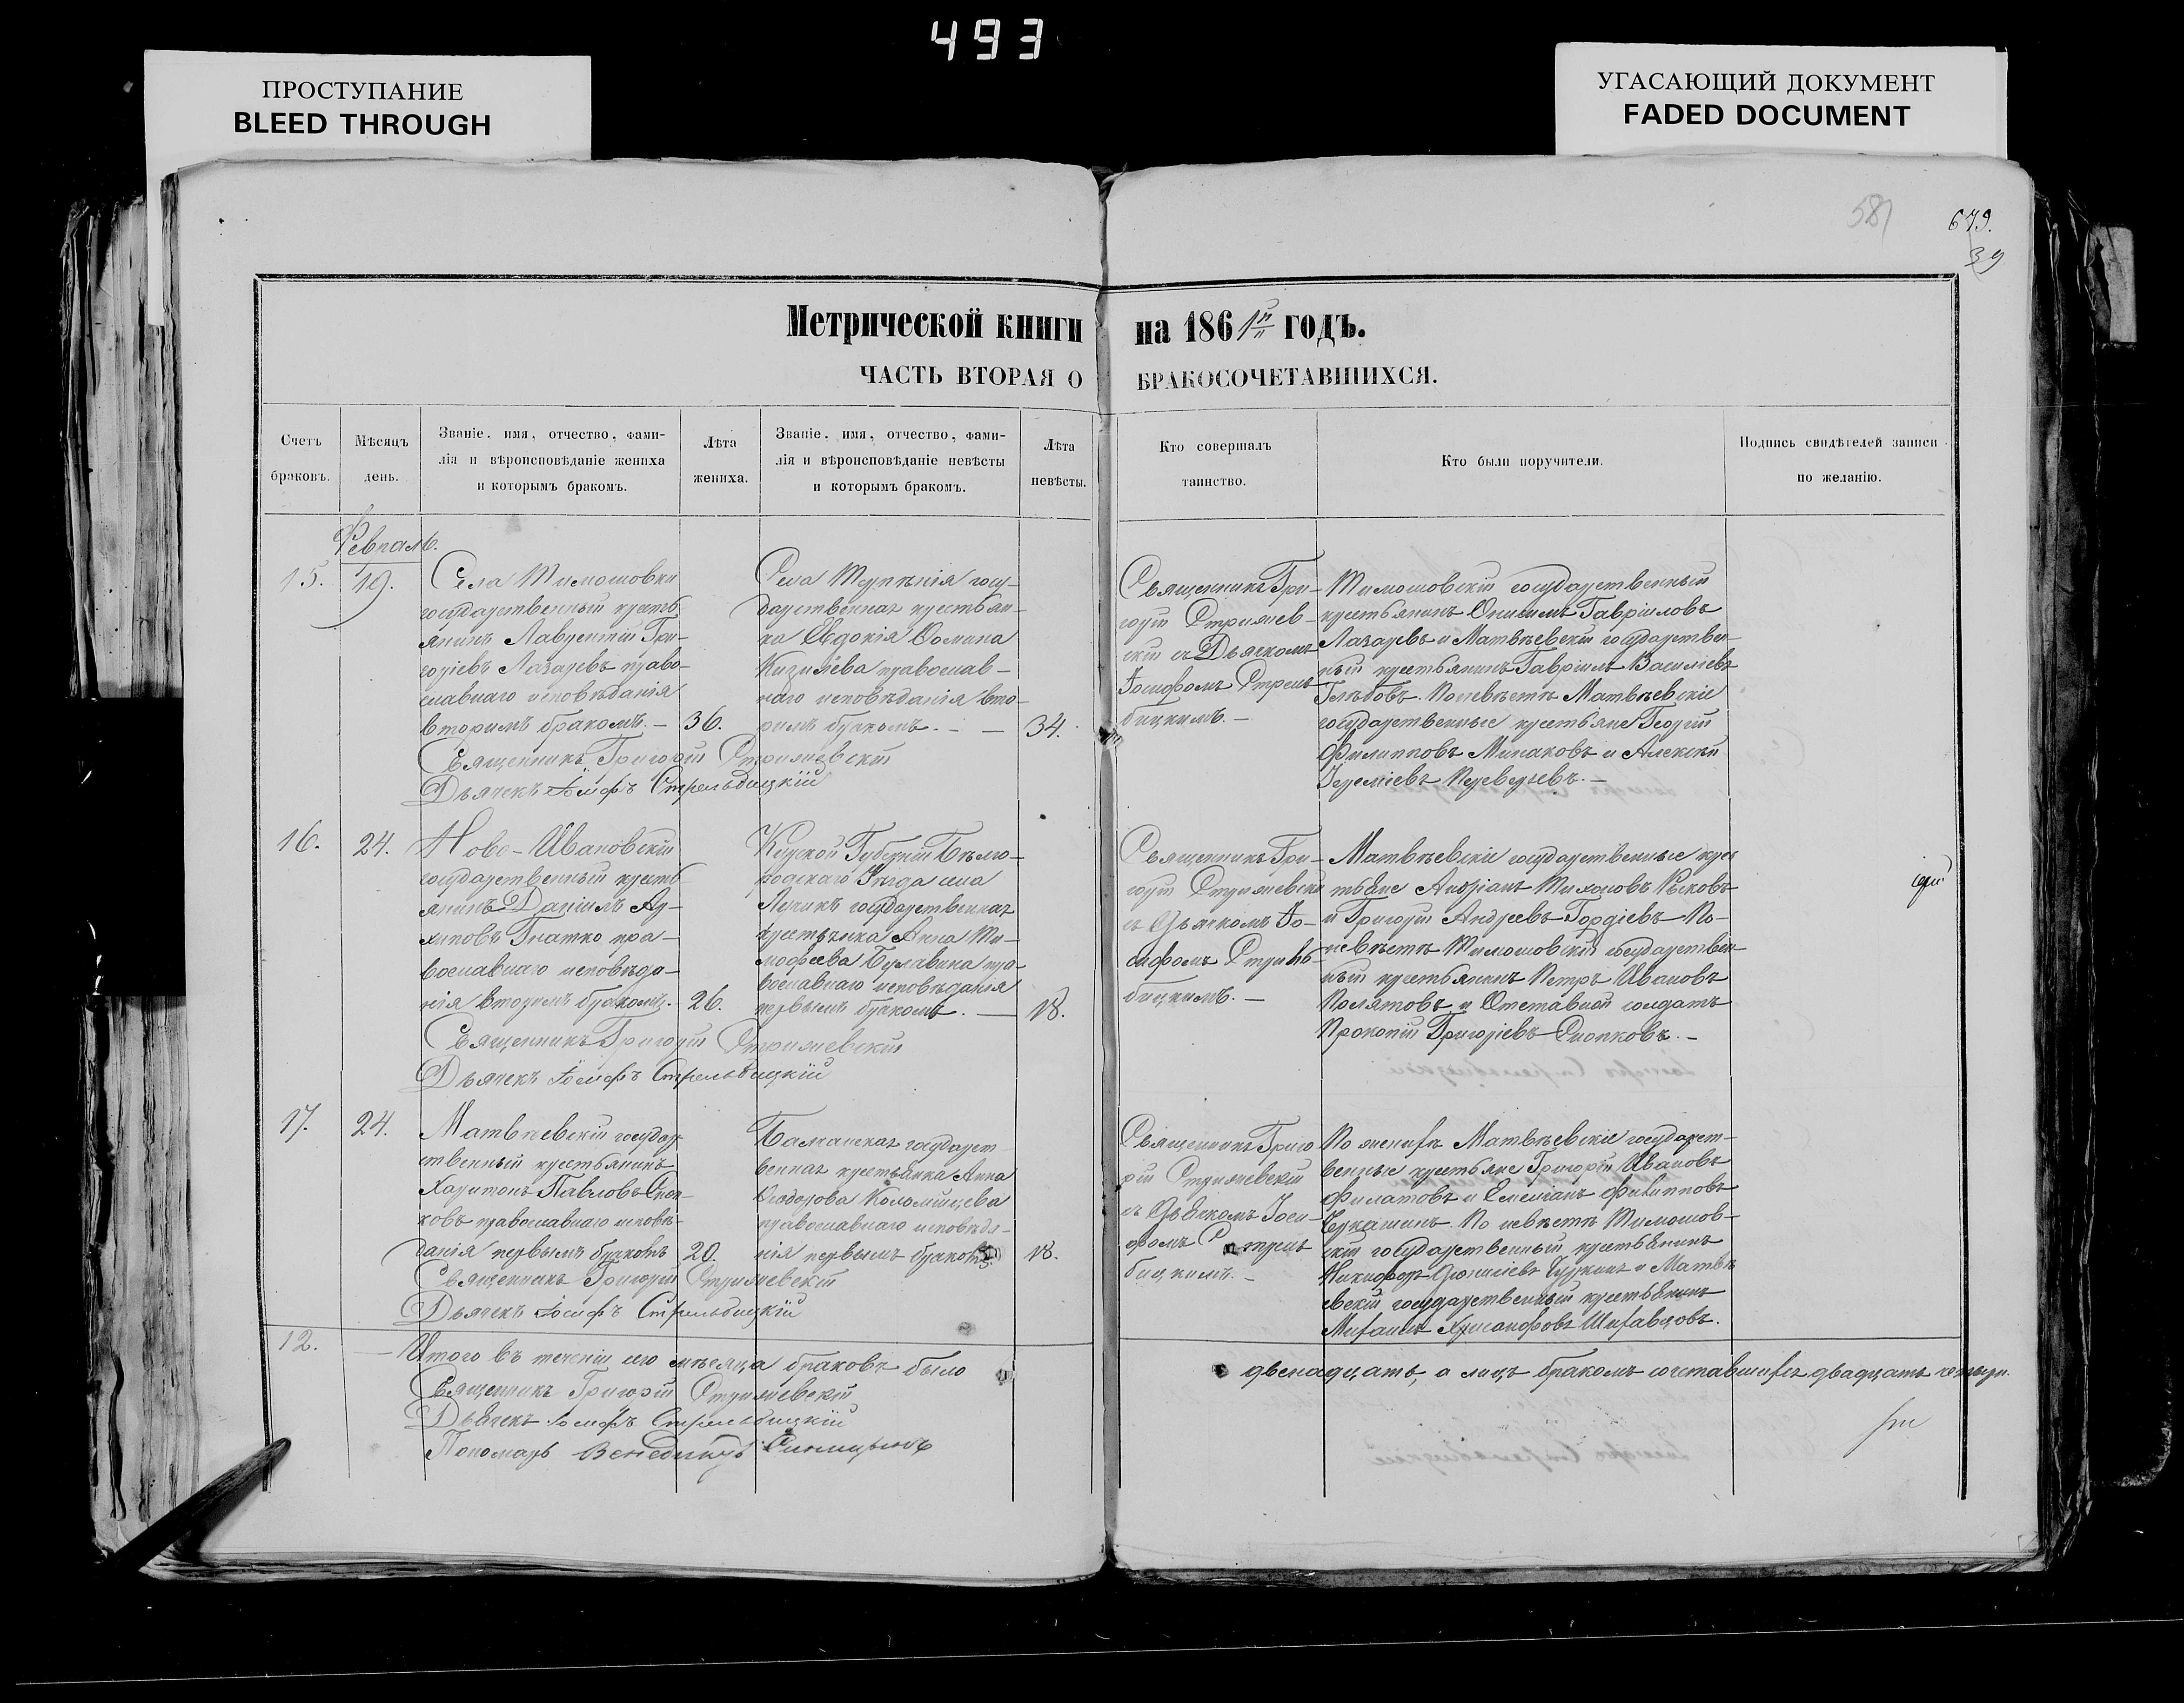 493
ПРОСТУПАНИЕ
BLEED THROUGH
УГАСАЮЩИЙ ДОКУМЕНТ
FADED DOCUMENT
581
679.
39
Метрической книги на 1861й годъ.
ЧАСТЬ ВТОРАЯ О БРАКОСОЧЕТАВШИХСЯ.
Счетъ
браковъ.
Мѣсяцъ
день.
Званіе, имя, отчество, фами-
лія и вѣроисповѣданіе жениха
и которымъ бракомъ.
Лѣта
жениха.
Званіе, имя, отчество, фами-
лія и вѣроисповѣданіе невѣсты
и которымъ бракомъ.
Лѣта
невѣсты.
Кто совершалъ
таинство.
Кто были поручители.
Подпись свидѣтелей записи
по желанію.
Февраль.
15.
19.
Села Тимошовки
государственный кресть
янинъ Лаврентій Гри-
горіевъ Лазаревъ право-
славнаго исповѣданія
вторымъ бракомъ. –
36.
Села госу-
дарственная крестьян-
ка Евдокія Ѳомина
православ-
наго исповѣданія вто-
рымъ бракомъ. – –
34.
Священникъ Гри-
горій Стрижев-
скій съ Дьячкомъ
Іосифомъ Стрель-
бицкимъ. –
Тимошовскій государственный
крестьянинъ Онисимъ Гавріиловъ
Лазаревъ и Матвѣевскій государствен-
ный крестьянинъ Гавріилъ Василіевъ
Глѣбовъ. По невѣстѣ Матвѣевскіе
государственные крестьяне Георгій
Филипповъ Минаковъ и Алексѣй
Іереміевъ
Священникъ Григорій Стрижевскій
Дьячекъ Іосифъ Стрельбицкій
16.
24.
Ново-Ивановскій
государственный кресть
янинъ Даніилъ Ар-
хиповъ Гнатко пра-
вославнаго исповѣда-
нія вторымъ бракомъ. –
26.
Курской Губерніи Бѣлго-
родскаго Уѣзда села
государственная
крестьянка Анна Ти-
мофеева Булавина пра-
вославнаго исповѣданія
первымъ бракомъ. –
18.
Священникъ Гри-
горій Стрижевскій
съ Дьячкомъ Іо-
сифомъ Стрель-
бицкимъ. –
Матвѣевскіе государственные крес
тьяне Андріанъ Тихоновъ
и Григорій Андреевъ Гордіевъ По-
невѣстѣ Тимошовскій государствен-
ный крестьянинъ Петръ Ивановъ
и Отставной солдатъ
Прокопій Григоріевъ Снопковъ. –
Священникъ Григорій Стрижевскій
Дьячекъ Іосифъ Стрельбицкій
17.
24.
Матвѣевскій государ
ственный крестьянинъ
Харитонъ Павловъ Сноп-
ковъ православнаго исповѣ-
данія первымъ бракомъ
20.
Балканская государст
венная крестьянка Анна
Ѳеодорова Коломійцева
православнаго исповѣда-
нія первымъ бракомъ
18.
Священникъ Григо
рій Стрижевскій
съ Дьячкомъ Іоси-
фомъ Стрель
бицкимъ. –
По женихѣ Матвѣевскіе государст-
венные крестьяне Григорій Ивановъ
Филатовъ и Емеліанъ Филипповъ
Чукашинъ. По невѣстѣ Тимошов-
скій государственный крестьянинъ
Никифоръ и Матвѣ
евскій государственный крестьянинъ
Михаилъ Хрисанфовъ Шихавцовъ.
Священникъ Григорій Стрижевскій
Дьячекъ Іосифъ Стрельбицкій
12.
– Итого въ теченіи сего мѣсяца браковъ было двенадцать, а лицъ бракомъ сочетавшихся двадцать четыре.
Священникъ Григорій Стрижевскій
Дьячекъ Іосифъ Стрельбицкій
Пономарь Венедиктъ Синицынъ